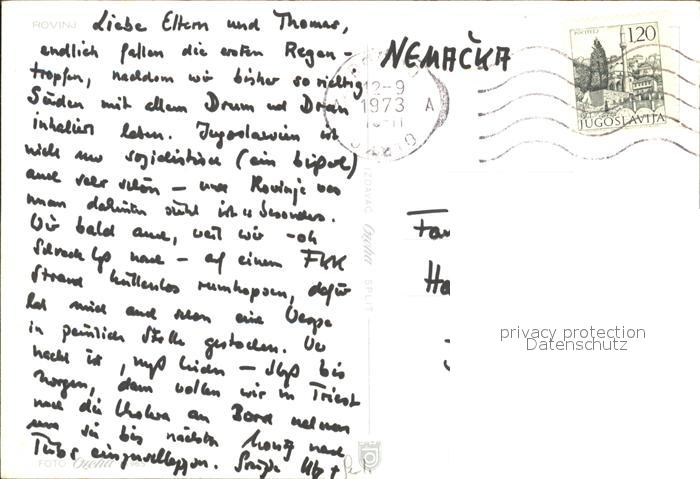 ROVINJ
Liebe Eltern und Thomas,
endlich fallen die ersten Regen-
tropfen, nachdem wir bisher so richtig
Süden mit allem Drum und Dran
inhaliert haben. Jugoslawien ist
nicht nur sozialistisch (ein bißchen)
auch sehr schön – und Rovinj
man dahinten sieht ist es besonders.
Wir bald auch, weil wir – oh
Schreck laß nach – auf einem FKK
Strand hüllenlos rumhopsen, dafür
hat mich auch schon eine Wespe
in peinliche Stelle gestochen. Wer
nackt ist, muß leiden – Tschüß bis
morgen, dann wollen wir in Triest
noch die an Bord nehmen
um sie bis nächsten Montag nach
einzuschleppen. Grüße
NEMAČKA
12-9
1973 A
POČITELJ
1.20
JUGOSLAVIJA
IZDAVAČ SPLIT
Fam
Ha
privacy protection
Datenschutz
FOTO